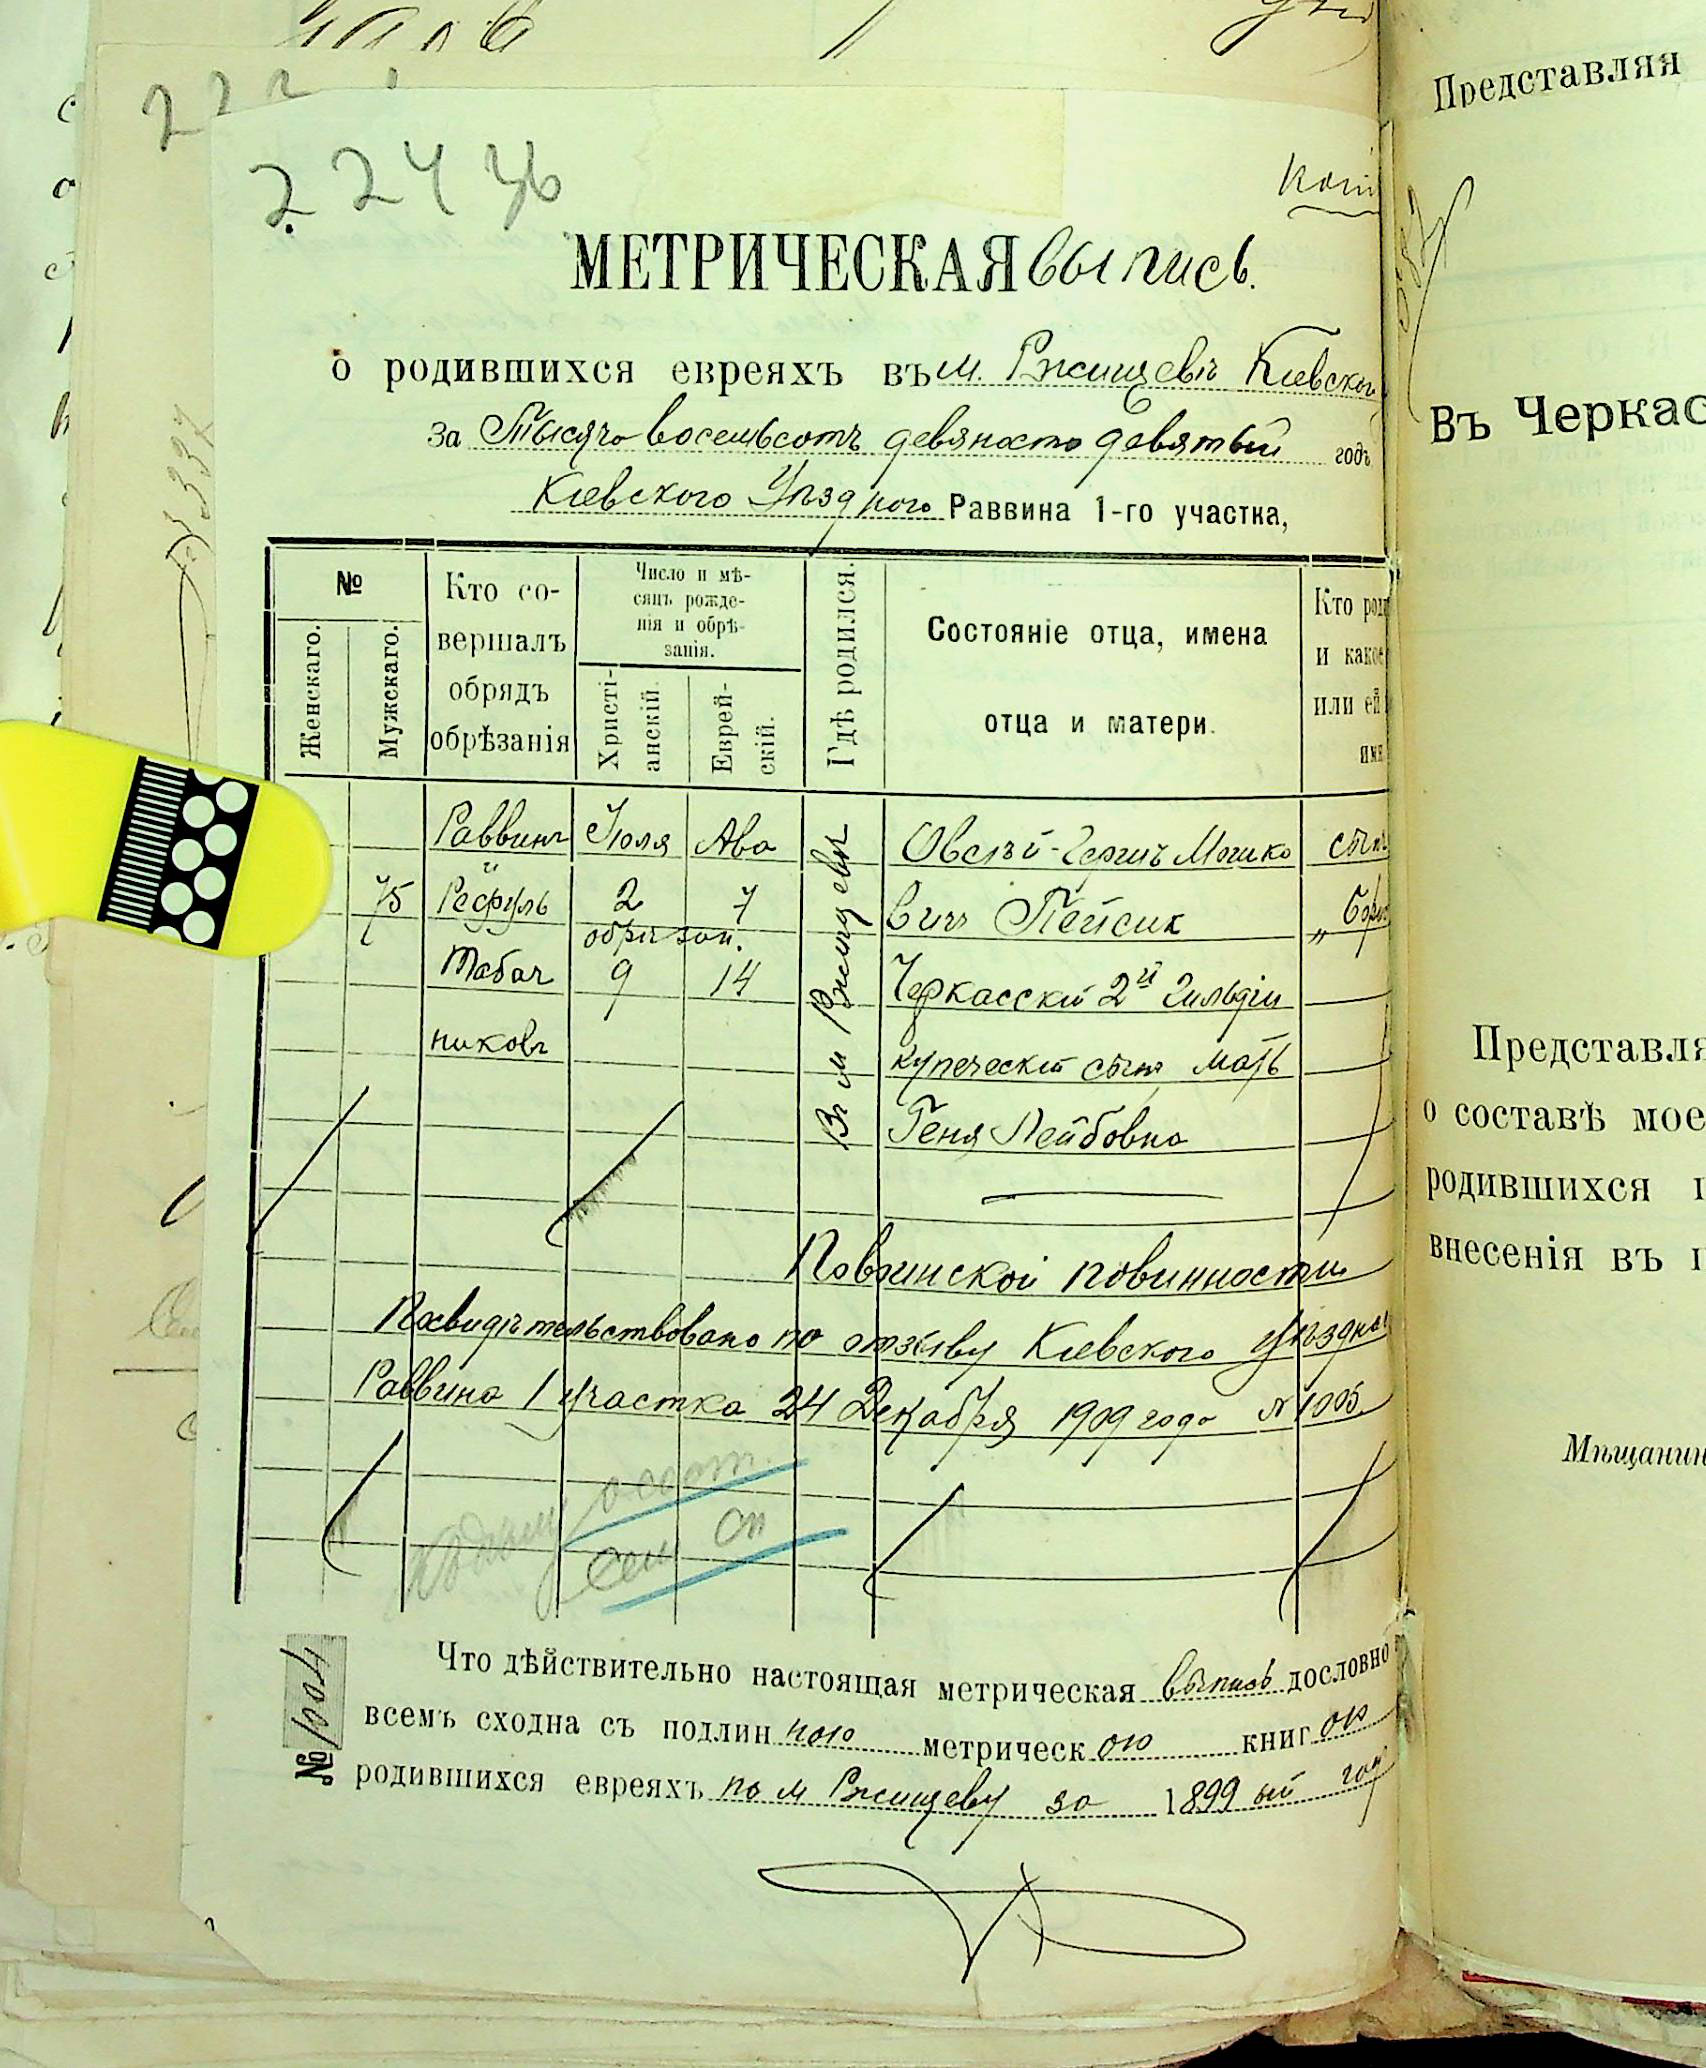 2244б
МЕТРИЧЕСКАЯ выпись.
о родившихся евреяхъ въ м. Ржищевѣ Кіевског
за Тысяча восемьсотъ девяносто девятый годъ
Кіевского Уѣздного Раввина 1-го участка,
№
Женскаго.
Мужскаго.
Кто со-
вершалъ
обрядъ
обрѣзанія
Число и мѣ-
сяцъ рожде-
нія и обрѣ-
занія.
Христі-
анскій.
Еврей-
скій.
Гдѣ родился.
Состояніе отца, имена
отца и матери.
Кто род
и какое
или ей
имя
Раввинъ Іюля Ава Овсѣй-Гершъ Мошко сынъ
75 Рефуль 2 7 вичъ Пейсик „Бор
обрѣзан.
Табач 9 14 Черкасскій 2й Гильдіи
никовъ купеческій сынъ мать
Геня Лейбовна
Въ м Ржищевѣ
По воинской повинности
Засвидѣтельствовано по отзыву Кіевского Уѣздна
Раввина 1 участка 24 Декабря 1909 года № 1005.
о сост.
сем сп
№ 1004
Что дѣйствительно настоящая метрическая выпись дословно
всемъ сходна съ подлинною метрическою книгою
родившихся евреяхъ по м Ржищеву за 1899 ый год
Представляя
Въ Черкас
Представля
о составѣ мое
родившихся
внесенія въ
Мѣщанин